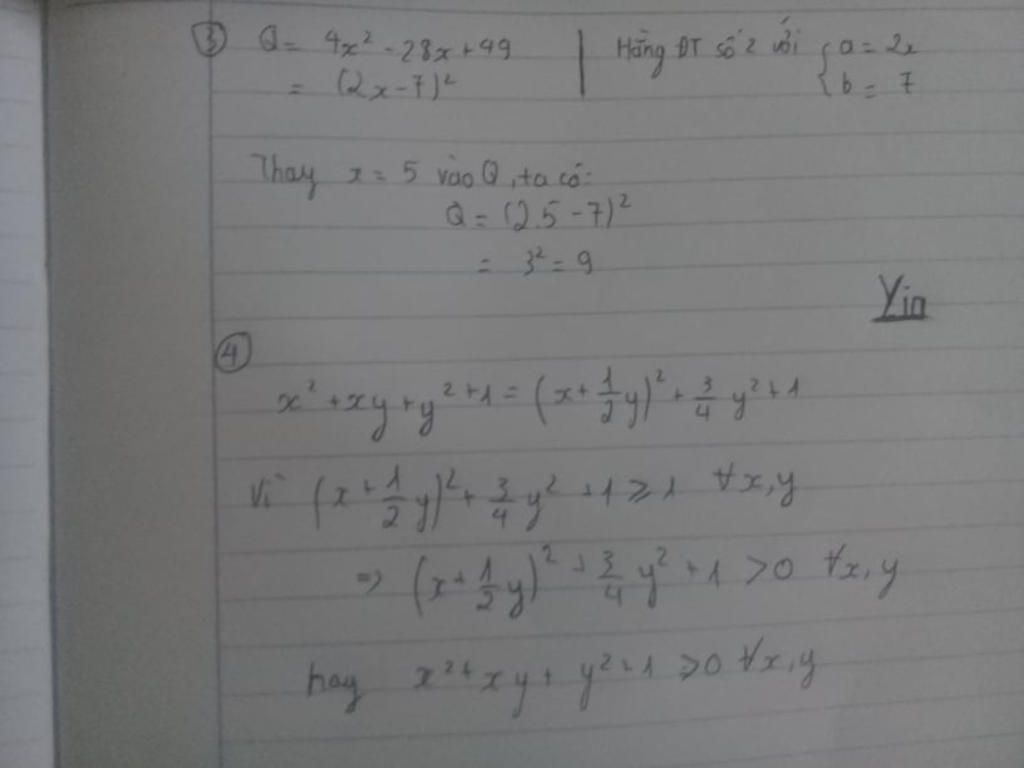 ③ Q = 4x² - 28x + 49 | Hằng ĐT số 2 với { a = 2x
= (2x - 7)² b = 7
Thay x = 5 vào Q, ta có:
Q = (2.5 - 7)²
= 3² = 9
Yin
④
x² + xy + y² + 1 = (x + 1/2 y)² + 3/4 y² + 1
Vì (x + 1/2 y)² + 3/4 y² + 1 ≥ 1 ∀x, y
=> (x + 1/2 y)² + 3/4 y² + 1 > 0 ∀x, y
hay x² + xy + y² + 1 > 0 ∀x, y